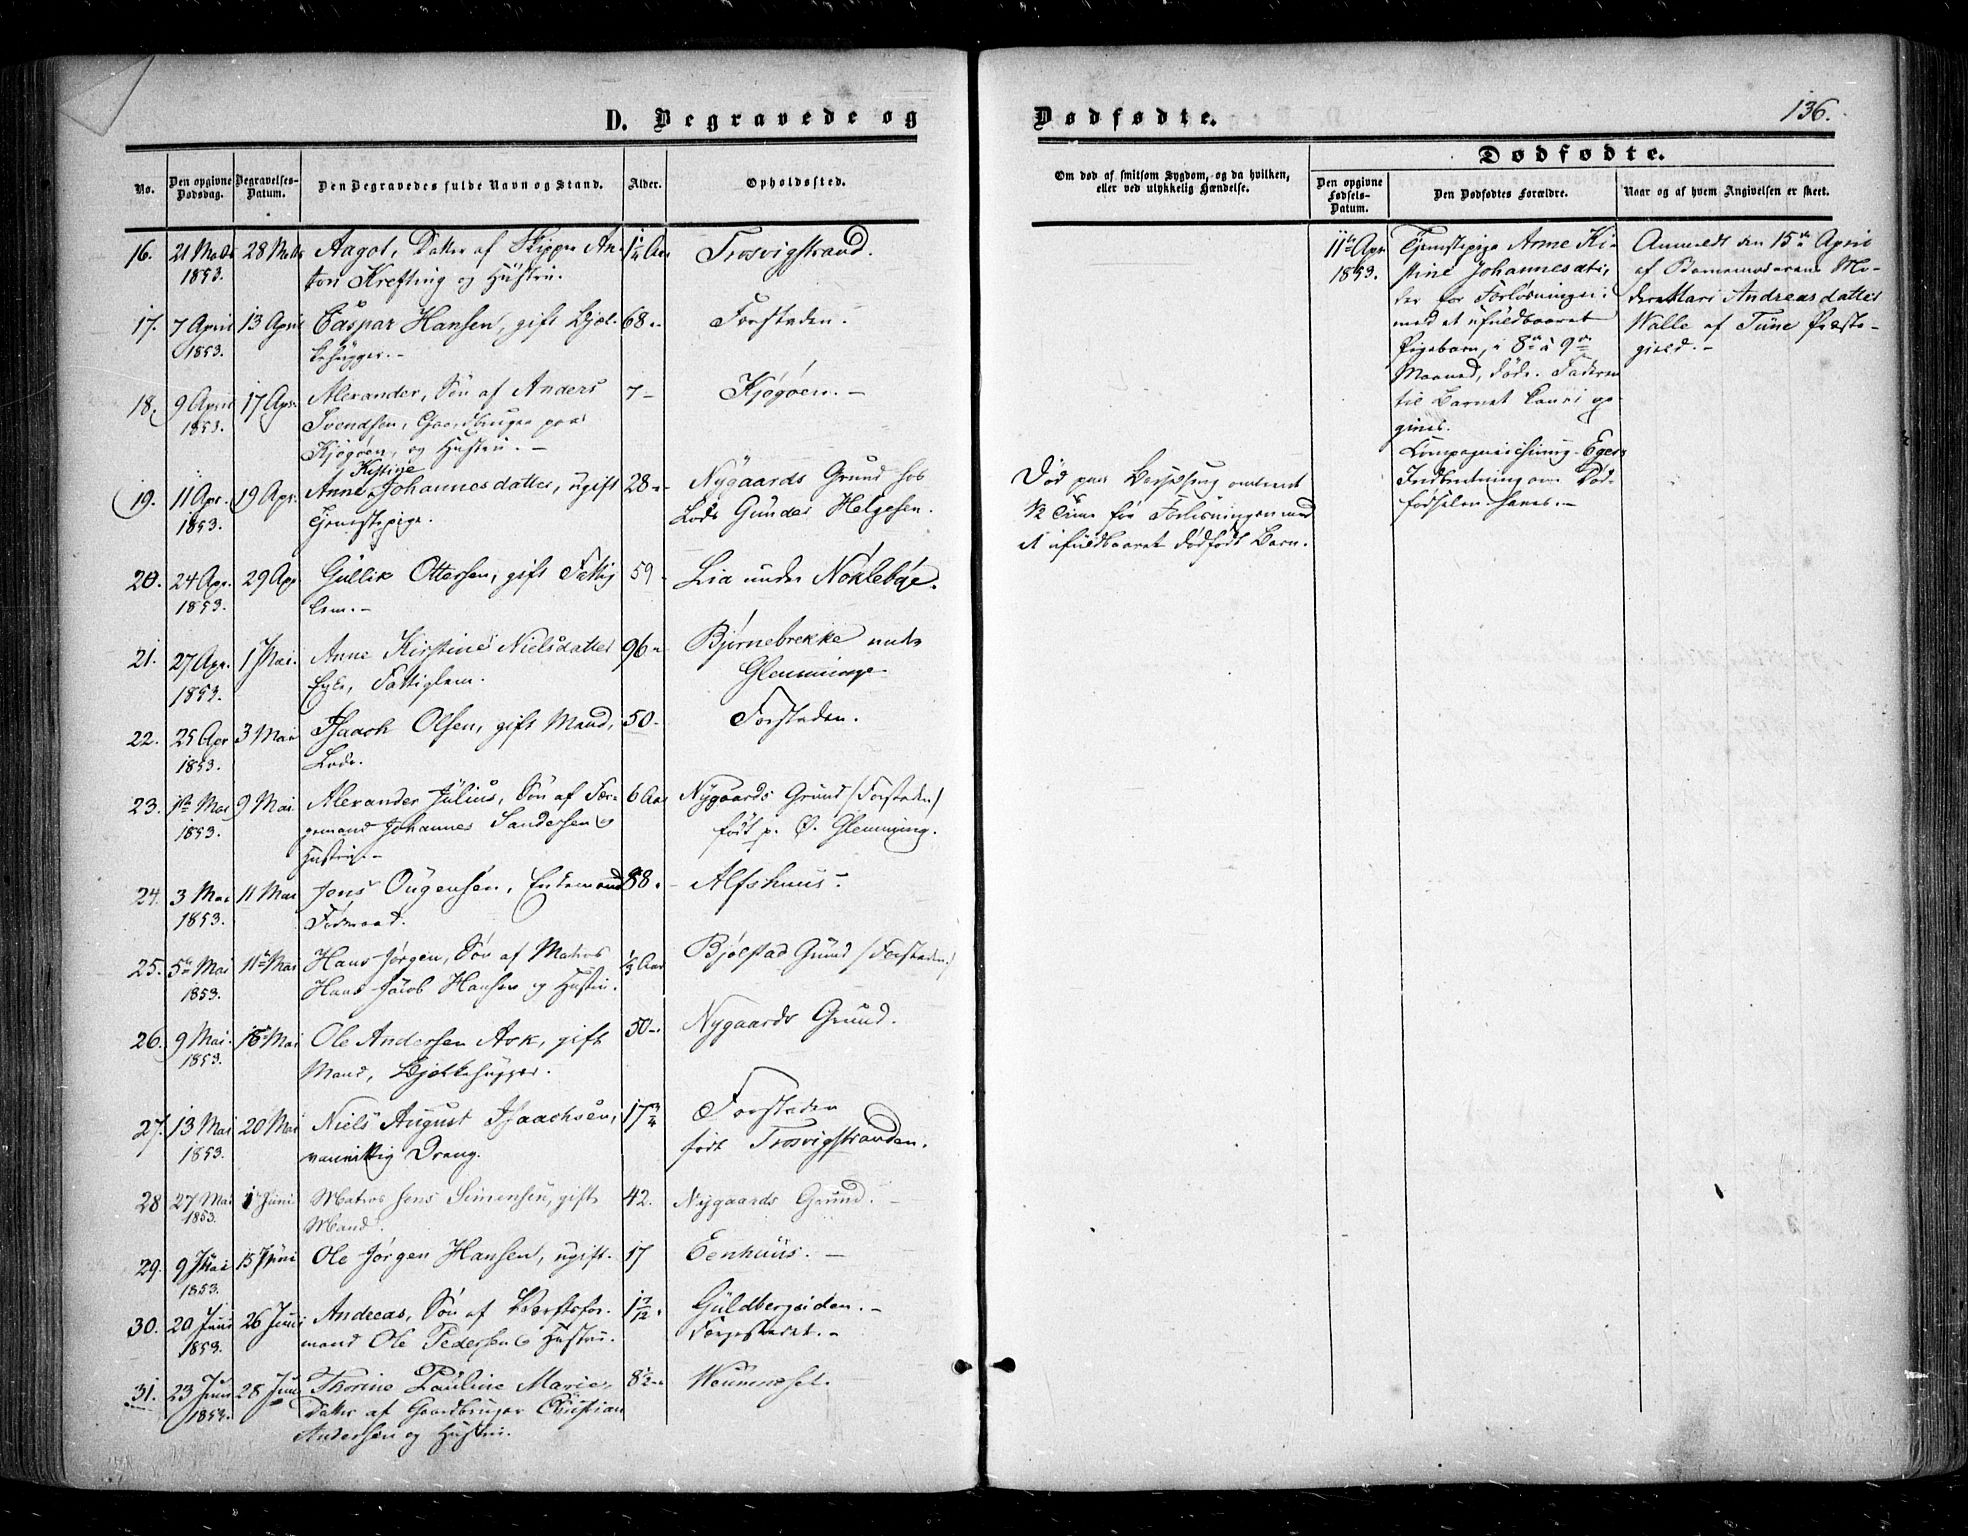 D. Begravede og
Dødfødte.
136.
No.
Den opgivne Dødsdag.
Begravelses-Datum.
Den Begravedes fulde Navn og Stand.
Alder.
Opholdssted.
Om død af smitsom Sygdom, og da hvilken, eller ved ulykkelig Hændelse.
Dødfødte.
Den opgivne Fødsels-Datum.
Den Dødfødtes Forældre.
Naar og af hvem Angivelsen er skeet.
16. 21 1853. 28 Aagot, Datter af Skipper An- Trosvigstrand.
ton Krefting og Hustru.
17. 7 April 1853. 13 April Caspar Hansen, gift Bjæl- 68 Forstaden.
kehugger.
18. 9 April 1853. 17 Apr. Alexander, Søn af Anders 7 Kjøgøen.
Svendsen, Gaardbruger paa
Kjøgøen, og Hustru.
19. 11 Apr. 1853. 19 Apr. Anne Kistine Johannesdatter, ugift 28 Nygaards Grund hos
Tjenestepige. Lods Gunder Helgesen.
20. 24 Apr. 1853. 29 Apr Gullik Ottersen, gift Fattig 59 Lia under Nøklebye.
lem.
21. 27 Apr. 1853. 1 Mai. Anne Kirstine Nielsdatter 96 Bjørnebrekke under
Enke, Fattiglem. Glemminge
22. 25 Apr 1853. 3 Mai Isaach Olsen, gift Mand, 50 Forstaden.
Lods.
23. 1ste Mai 1853. 9 Mai Alexander Julius, Søn af Fær- 6 Aar Nygaards Grund /Forstaden/
gemand Johannes Sandersen og født p. Ø. Glemming.
Hustru.
24. 3 Mai 1853. 11 Mai Jens Enkemand 88 Alfshuus.
25. 5te Mai 1853. 11te Mai Hans Jørgen, Søn af Matros 1/3 Aar Bjølstad Grund /Forstaden./
Hans Jacob Hansen og Hustru.
26. 9 Mai. 1853. 18 Mai Ole Andersen Ask, gift 50 Nygaards Grund.
Mand, Bjelkehugger.
27. 13 Mai 1853. 20 Mai Niels August Isaachsen, 17 3/4 Forstaden
vanvittig Dreng. født Trosvigstranden.
28 27 Mai 1853. 1 Juni Matros Jens Simensen, gift 42. Nygaards Grund.
Mand.
29. 9 1853. 15 Juni Ole Jørgen Hansen, ugift. 17 Eenhuus.
30. 20 Juni 1853. 26 Juni Andreas, Søn af Værftsfor- 1 7/12 Guldbergsiden.
mand Ole Pedersen og Hustru. Færgestedet.
31. 23 Juni 1853. 28 Juni Thorine Pauline Marie, 8 1/2
Datter af Gaardbruger Christian
Andersen og Hustru.
Død paa omtrent
1/2 Time før Forløsningen med
et ufuldbaaret dødfødt Barn.
11te Apr 1853.
Tjenestepige Anne Ki-
stine Johannesdatr,
der før Forløsningen
med et ufuldbaaret
Pigebarn, i 8de à 9de
Maaned, døde. Faderen
til Barnet kan ei op-
gives.
Compagniechirurg Egers
Indberetning om Død-
fødselen haves.
Anmeldt den 15de April
af Barnemoderens Mo-
der Mari Andreasdatter
Walle af Tune Præste-
gield.